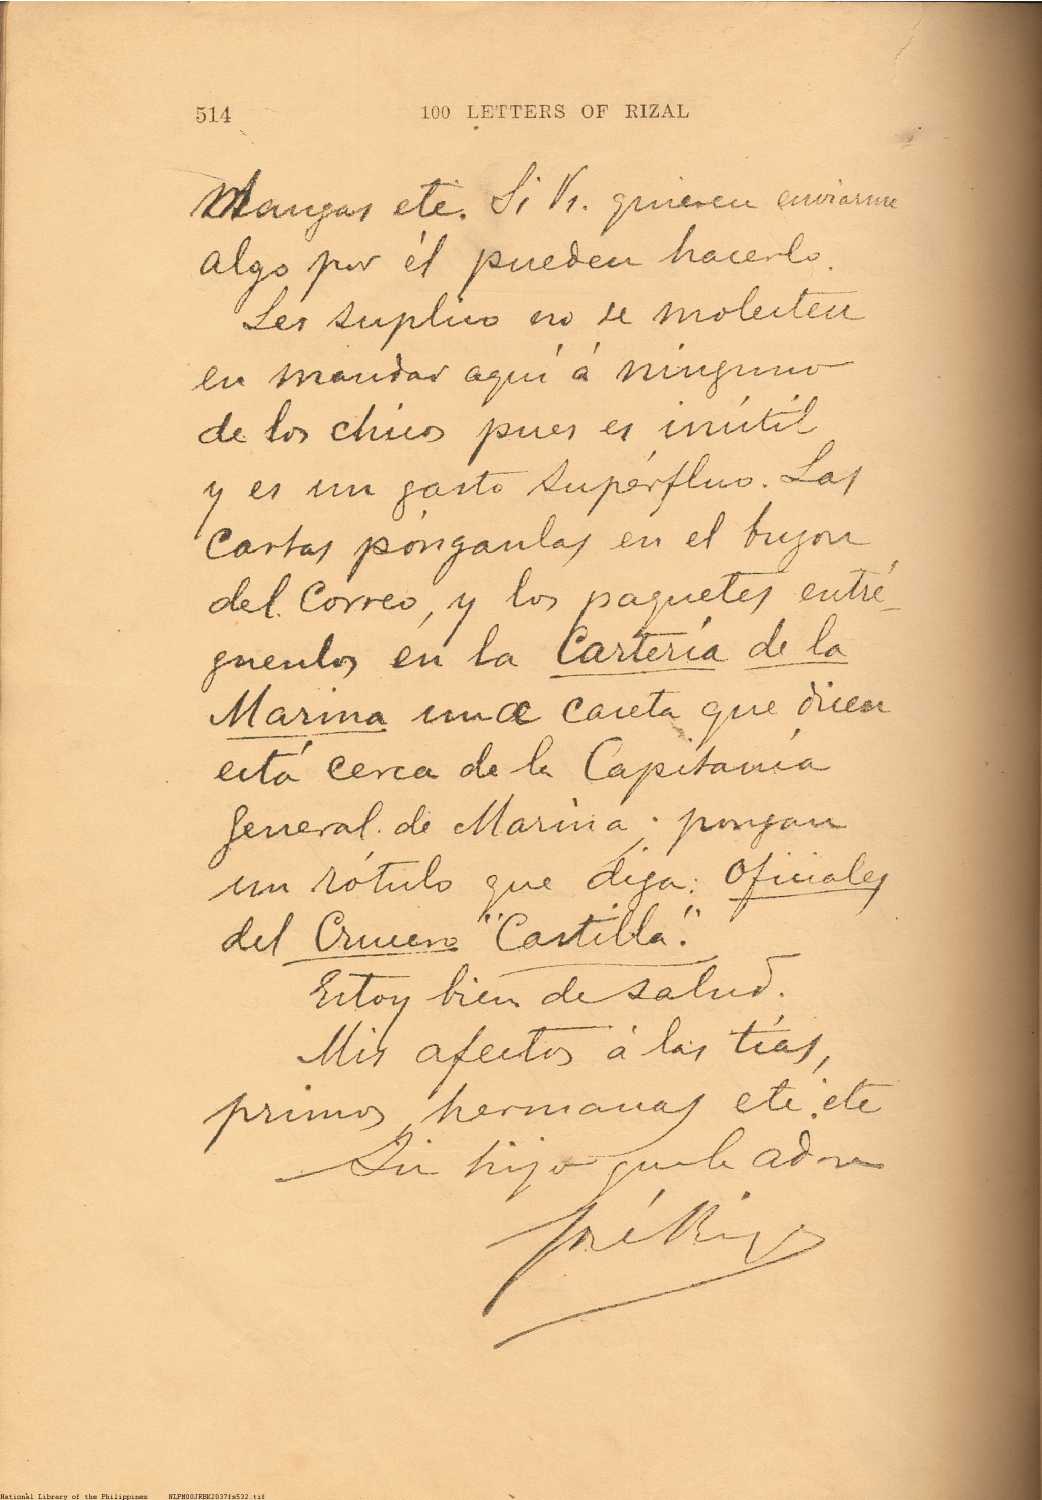 514 100 LETTERS OF RIZAL
Mangas etc. Si Vs. quieren enviarme
algo por él pueden hacerlo.
Les suplico no se molesten
en mandar aquí á ninguno
de los chicos pues es inútil
y es un gasto supérfluo. Las
Cartas pónganlas en el buzon
del Correo, y los paquetes entré-
guenlos en la Cartería de la
Marina una caseta que dicen
está cerca de la Capitanía
General de Marina; pongan
un rótulo que diga: Oficiales
del Crucero "Castilla".
Estoy bien de salud.
Mis afectos á las tías,
primos, hermanas etc. etc
Su hijo que le adora
José Rizal
National Library of the Philippines NLPM00JRBK2037fs532.tif